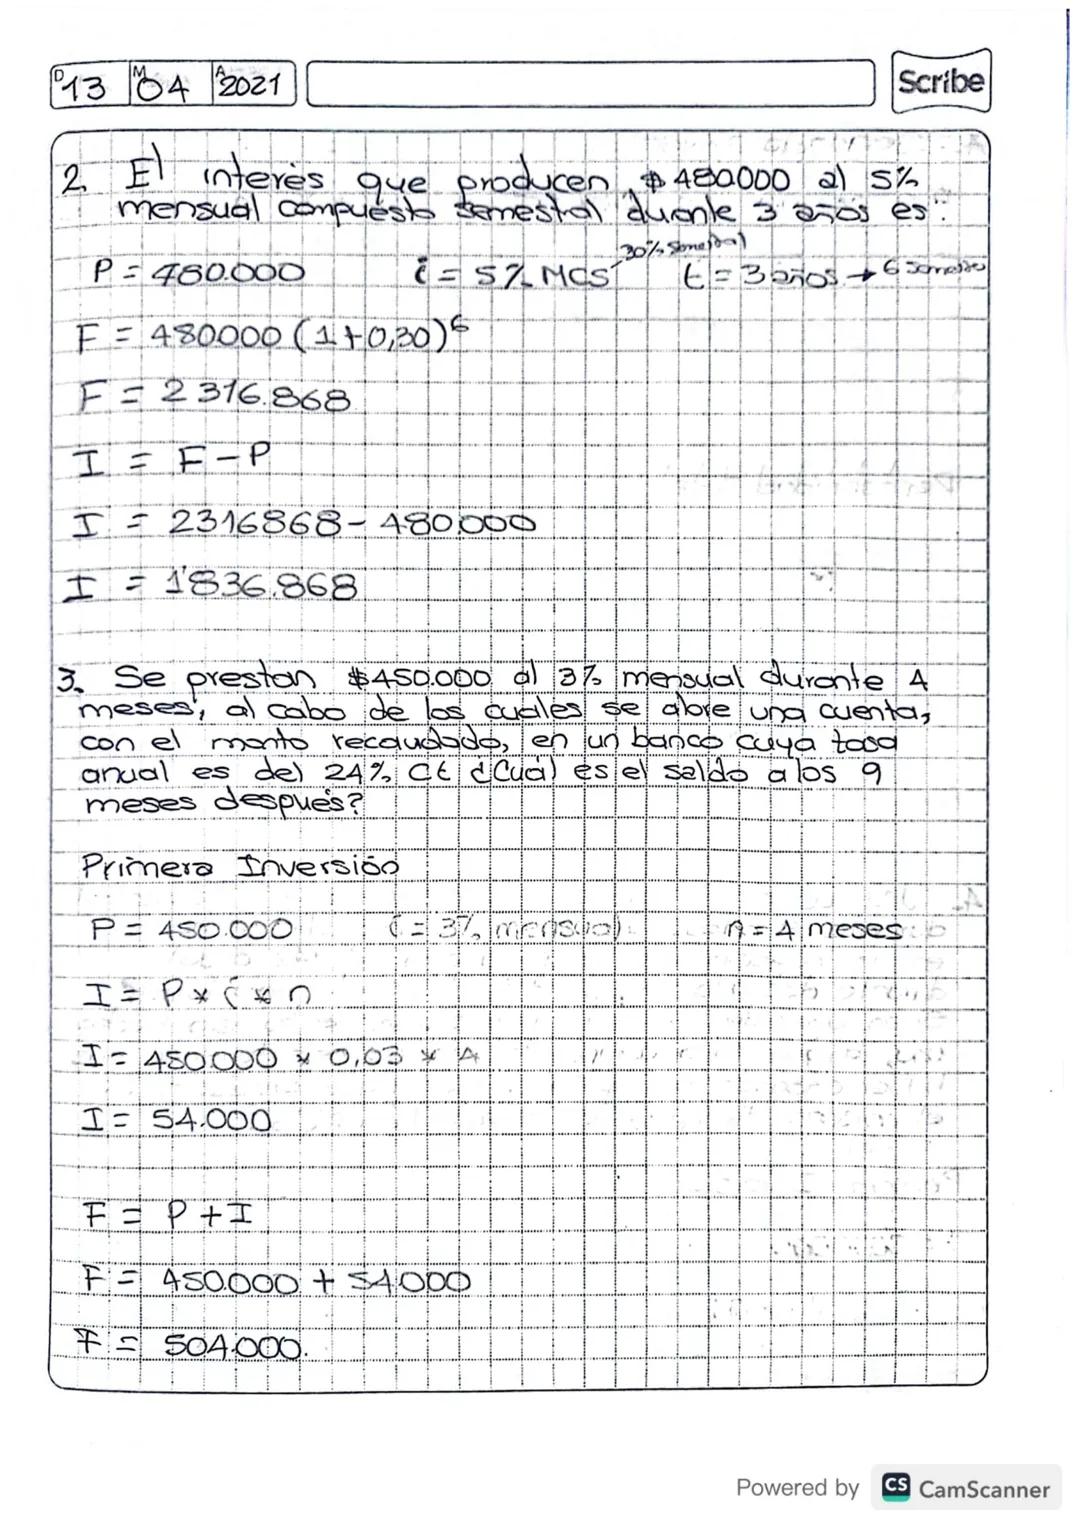 D 13 M 04 A 2021
Scribe
2. El interés que producen $480.000 al 5%
mensual compuesto semestral durante 3 años es:
30% semestral
P = 480.000 i = 5% MCS t = 3 años → 6 semestres
F = 480000 (1+0,30)^6
F = 2316.868
I = F - P
I = 2316868 - 480.000
I = 1'836.868
3. Se prestan $450.000 al 3% mensual durante 4
meses, al cabo de los cuales se abre una cuenta,
con el monto recaudado, en un banco cuya tasa
anual es del 24% Ct ¿Cuál es el saldo a los 9
meses después?
Primera Inversión
P = 450.000 i = 3% mensual n = 4 meses
I = P * i * n
I = 450.000 * 0,03 * 4
I = 54.000
F = P + I
F = 450.000 + 54.000
F = 504.000.
Powered by CS CamScanner